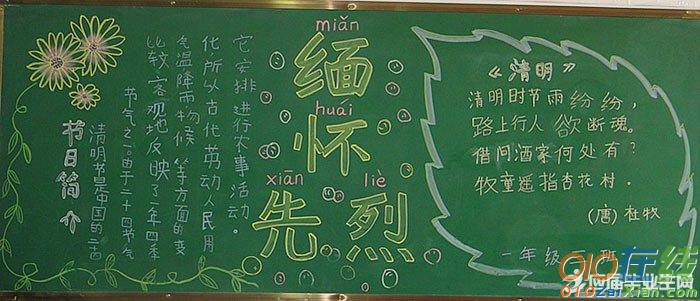 节日简介
清明节是中国的二十四
节气之一。由于二十四节气
比较客观地反映了一年四季
气温降雨物候等方面的变
化所以古代劳动人民用
它安排进行农事活动。
miǎn
缅
huái
怀
xiān liè
先烈
《清明》
清明时节雨纷纷,
路上行人欲断魂。
借问酒家何处有?
牧童遥指杏花村.
(唐)杜牧
一年级
910在线
应届毕业生网